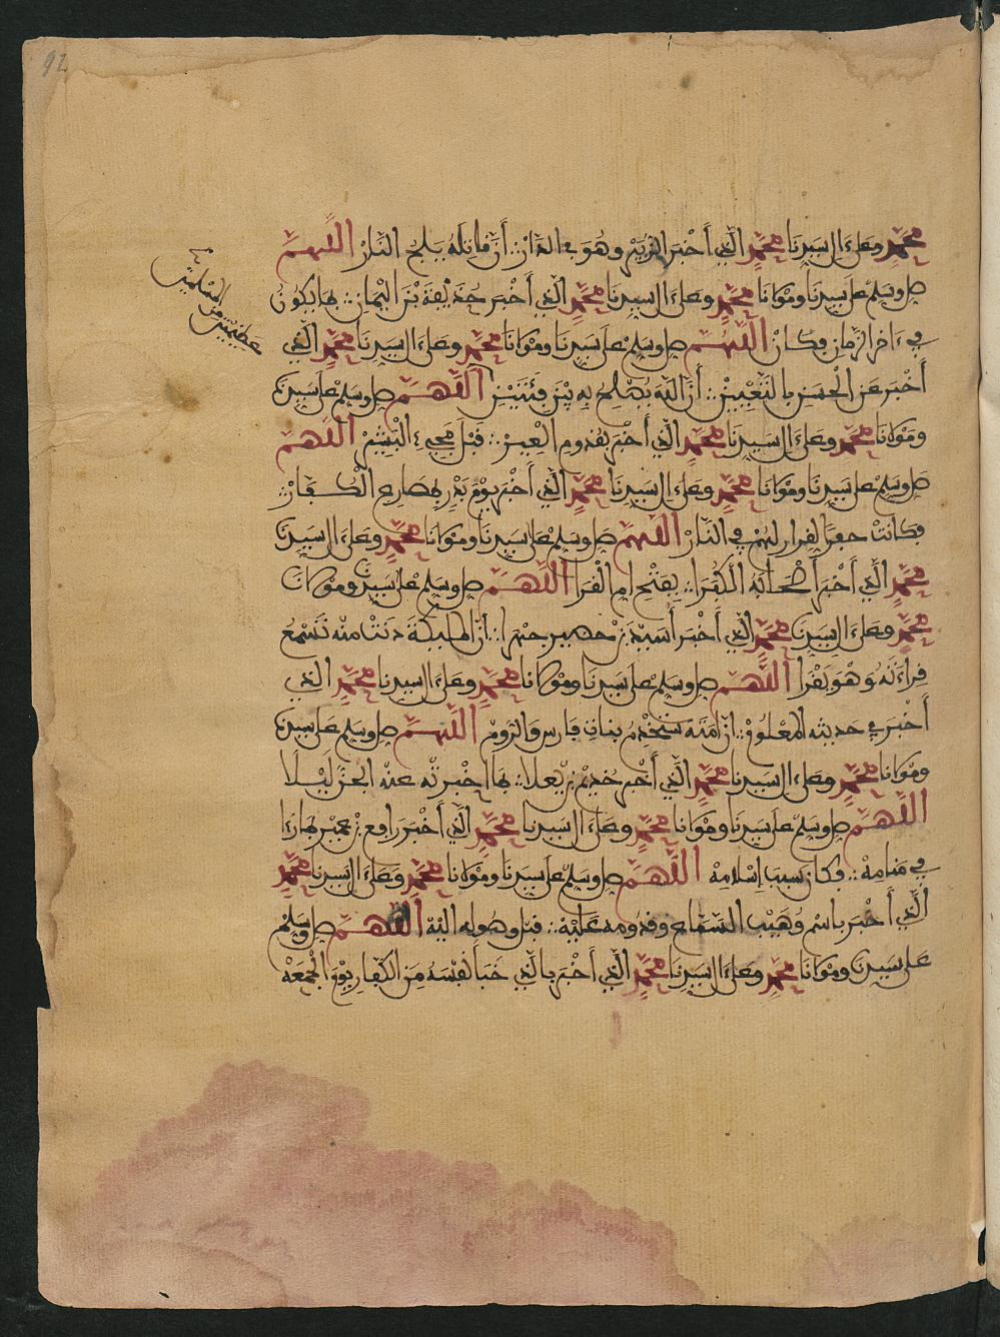 محمد وعلى ءال سيدنا محمد الذي أخبر الزبير وهو في الدار أن قاتله يلج النار اللهم
صل وسلم على سيدنا ومولانا محمد وعلى ءال سيدنا محمد الذي أخبر حذيفة بن اليمان بما يكون
في ءاخر الزمان فكان اللهم صل وسلم على سيدنا ومولانا محمد وعلى ءال سيدنا محمد الذي
أخبر عن الحسن أن الله يصلح به بين فئتين اللهم صل وسلم على سيدنا
ومولانا محمد وعلى ءال سيدنا محمد الذي أخبر بقدوم العير قبل مجيء اللهم
صل وسلم على سيدنا ومولانا محمد وعلى ءال سيدنا محمد الذي أخبر يوم بدر بمصارع الكفار
فكانت حفرا لفرارهم في النار اللهم صل وسلم على سيدنا ومولانا محمد وعلى ءال سيدنا
محمد الذي أخبر أصحابه بفتح ام القرا اللهم صل وسلم على سيدنا ومولانا
محمد وعلى ءال سيدنا محمد الذي أخبر أسيد بن حضير أن الملائكة دنت منه تسمع
قراءته وهو يقرا اللهم صل وسلم على سيدنا ومولانا محمد وعلى ءال سيدنا محمد الذي
أخبر في حديثه المعلوم أن أمته ستخدم بنات فارس والروم اللهم صل وسلم على سيدنا
ومولانا محمد وعلى ءال سيدنا محمد الذي أخبر بما اخبرته عنه الجن ليلا
اللهم صل وسلم على سيدنا ومولانا محمد وعلى ءال سيدنا محمد الذي أخبر رافع بن عمير بما رءا
في منامه فكان سبب إسلامه اللهم صل وسلم على سيدنا ومولانا محمد وعلى ءال سيدنا محمد
الذي أخبر باسم وهيب السماع وقدومه عليه قبل وصوله اليه اللهم صل وسلم
على سيدنا ومولانا محمد وعلى ءال سيدنا محمد الذي أخبر بالذي خبا نفسه من الكفار يوم الجمعة
عظيمتين من المسلمين
92